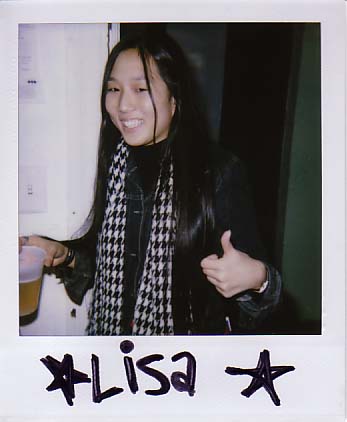 ★Lisa★